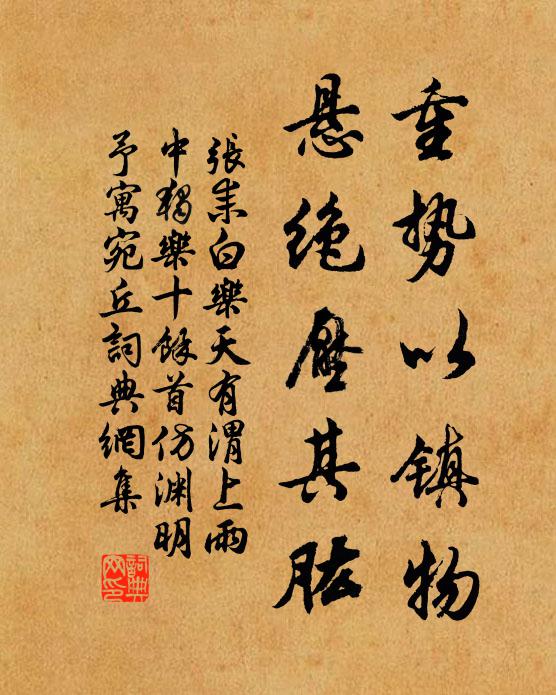 重势以镇物
悬绝压其肱
張耒白樂天有渭上雨
中獨樂十餘首仿淵明
予寓宛丘詞典網集
詞典
网印